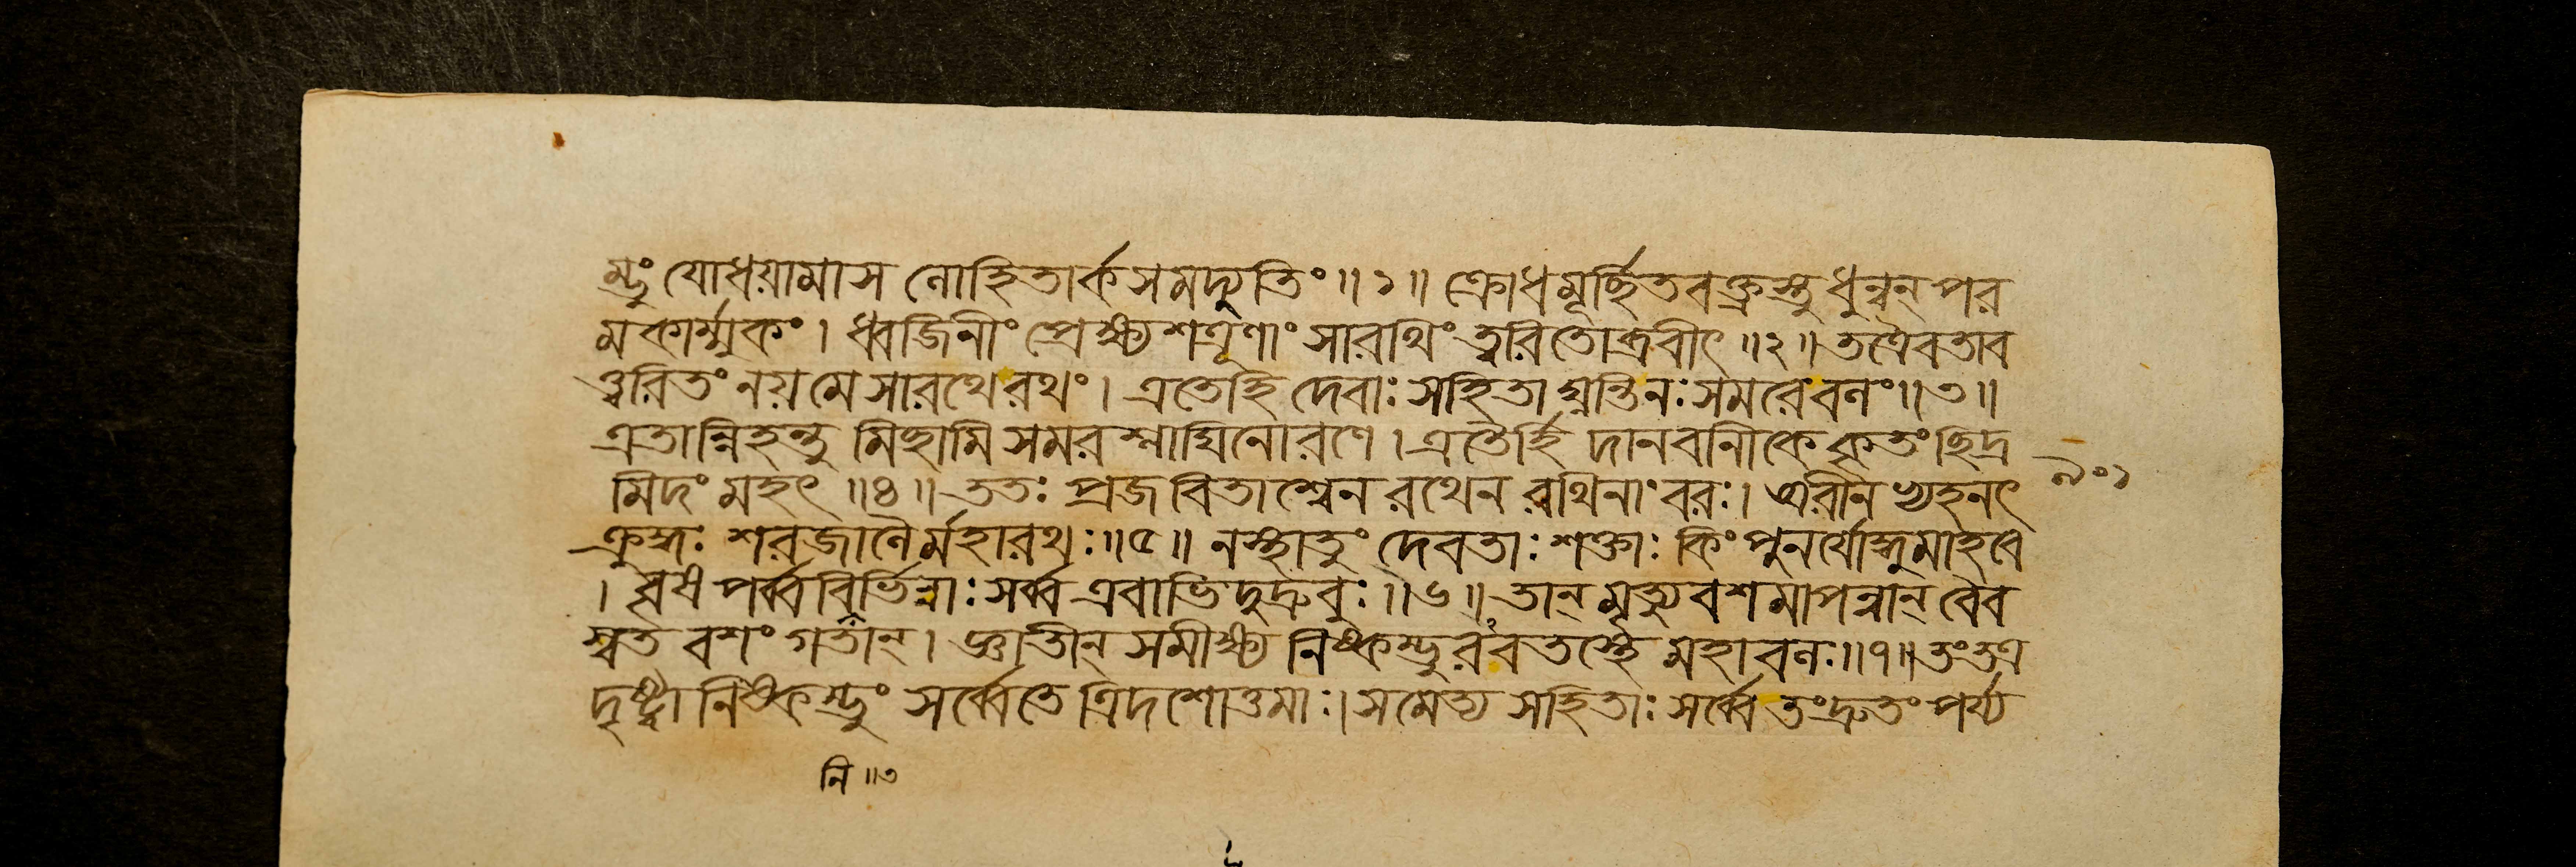 ম্ভুং যোধয়ামাস নোহিতার্কসমদ্যুতিং॥১॥ ক্রোধমূর্চ্ছিতবক্ত্রস্তু ধুন্বন্ পর
মকার্ম্মুকং। ধ্বজিনীং প্রেক্ষ্য শত্রূণাং সারথিং ত্বরিতোব্রবীৎ॥২॥ তত্রৈবতাব
ত্ত্বরিতং নয়মে সারথে রথং। এতেহি দেবাঃ সহিতা ঘ্নন্তিনঃ সমরেবনং॥৩॥
এতান্নিহন্তু মিছামি সমরশ্নাঘিনোরণে। এতৈর্হি দানবানীকে কৃতং ছিদ্র
মিদং মহৎ॥৪॥ ততঃ প্রজবিতাশ্বেন রথেন রথিনাং বরঃ। অরীন
ক্রুদ্ধঃ শরজানৈর্মহারথঃ॥৫॥ নস্থাতুং দেবতাঃ শক্তাঃ কিং পুনর্যোদ্ধুমাহবে
। পর্ব্ব নির্ভিন্নাঃ সর্ব্ব এবাভিদুদ্রুবুঃ॥৬॥ তান্ মৃত্যুবশমাপন্নান্ বৈব
স্বত বশং গতান্। জ্ঞাতীন্ সমীক্ষ্য নিষ্কম্ভুরবতস্থে মহাবনঃ॥৭॥ তংতত্র
দৃষ্ট্বা নিষ্কম্ভুং সর্ব্বেতে ত্রিদশোত্তমাঃ। সমেত্য সহিতাঃ সর্ব্বে তংদ্রুতং পর্য্য
নি॥৩